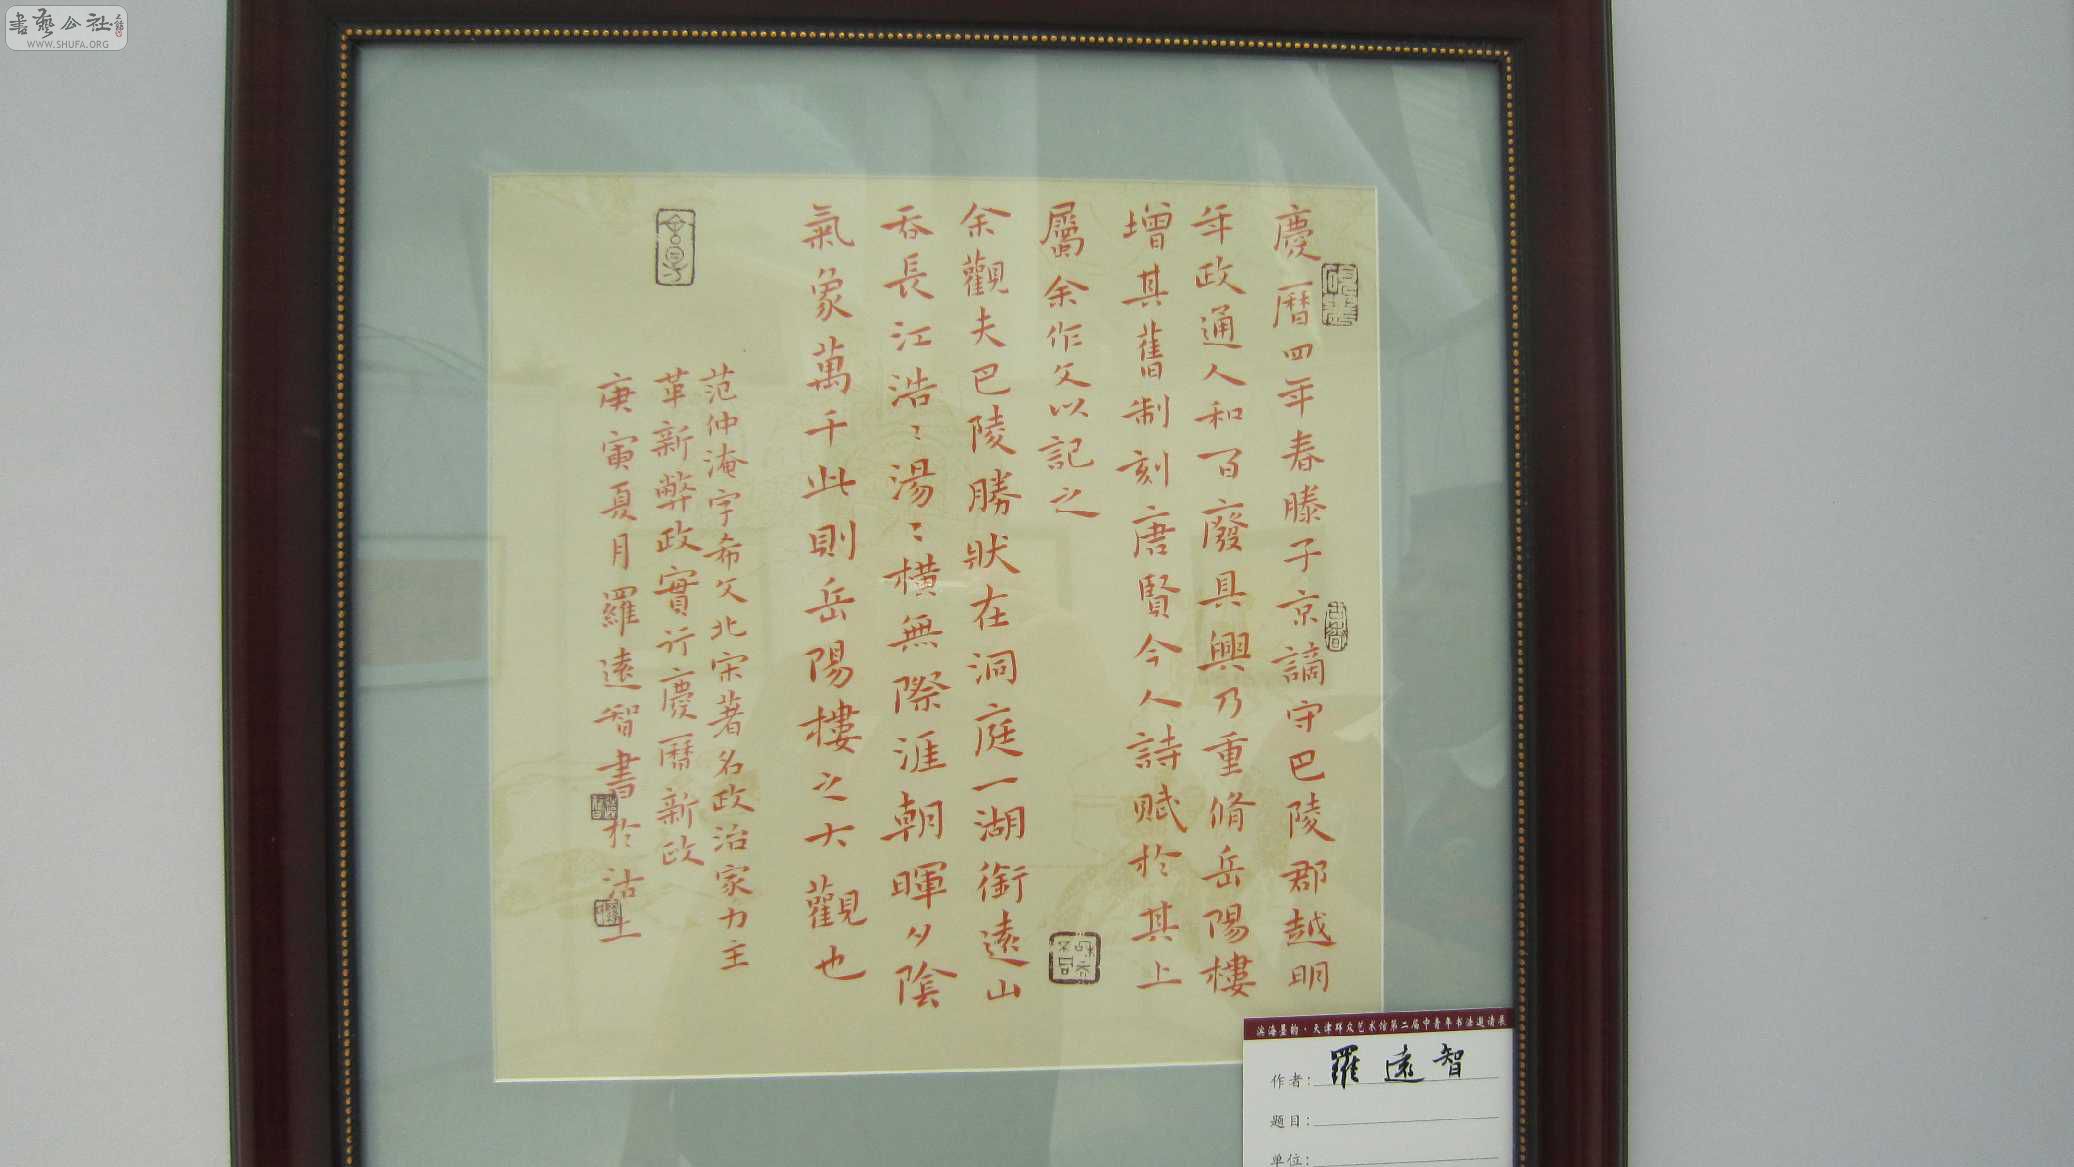 慶曆四年春滕子京謫守巴陵郡越明
年政通人和百廢具興乃重脩岳陽樓
增其舊制刻唐賢今人詩賦於其上
屬余作文以記之
余觀夫巴陵勝狀在洞庭一湖銜遠山
吞長江浩〻湯〻橫無際涯朝暉夕陰
氣象萬千此則岳陽樓之大觀也
范仲淹字希文北宋著名政治家力主
革新弊政實行慶曆新政
庚寅夏月羅遠智書於沽上
滨海墨韵·天津群众艺术馆第二届中青年书法邀请展
作者：羅遠智
题目：
单位：
書藝公社
WWW.SHUFA.ORG